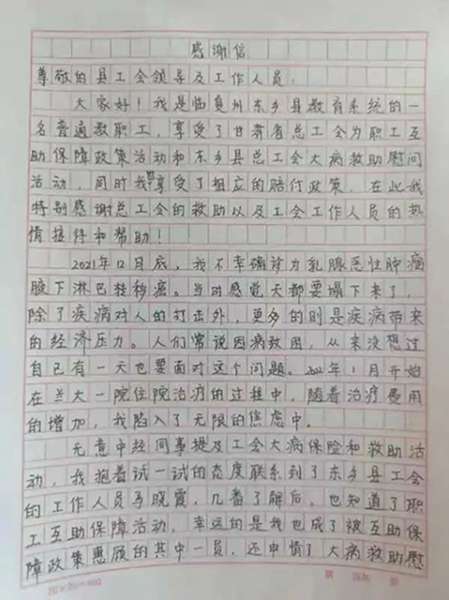 感谢信
尊敬的县工会领导及工作人员:
大家好！我是临夏州东乡县教育系统的一
名普通教职工，享受了甘肃省总工会为职工互
助保障政策活动和东乡县总工会大病救助慰问
活动，同时我享受了相应的赔付政策，在此我
特别感谢总工会的救助以及工会工作人员的热
情接待和帮助！
2021年12月底，我不幸确诊为乳腺恶性肿瘤
腋下淋巴转移癌。当时感觉天都要塌下来了，
除了疾病对人的打击外，更多的则是疾病带来
的经济压力。人们常说因病致困，从来没想过
自己有一天也要面对这个问题。2022年1月开始
在兰大一院住院治疗的过程中，随着治疗费用
的增加，我陷入了无限的焦虑中。
无意中经同事提及工会大病保险和救助活
动，我抱着试一试的态度联系到了东乡县工会
的工作人员马晓霞，几番了解后，也知道了职
工互助保障活动，幸运的是我也成了被互助保
障政策惠顾的其中一员，还申请了大病救助慰